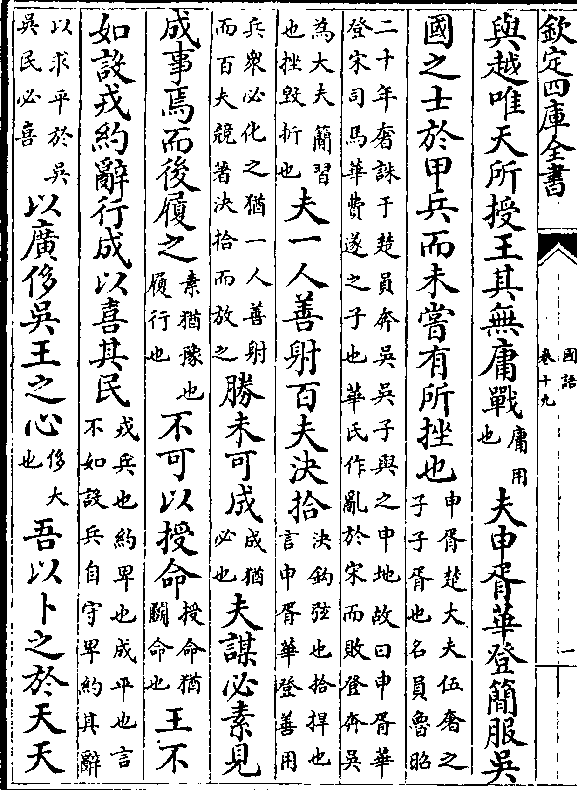 欽定四庫全書
國語
卷十九
一
與越唯天所授王其無庸戰庸用也夫申胥華登簡服吳
國之士於甲兵而未嘗有所挫也申胥楚大夫伍奢之子子胥也名員魯昭
二十年奢誅于楚員奔吳吳子與之申地故曰申胥華登宋司馬華費遂之子也華氏作亂於宋而敗登奔吳
為大夫簡習也挫毀折也夫一人善射百夫決拾決鈎弦也拾捍也言申胥華登善用
兵衆必化之猶一人善射而百夫競著決拾而放之勝未可成成猶必也夫謀必素見
成事焉而後履之素猶豫也履行也不可以授命授命猶鬭命也王不
如設戎約辭行成以喜其民戎兵也約卑也成平也言不如設兵自守卑約其辭
以求平於吳吳民必喜以廣侈吳王之心侈大也吾以卜之於天天